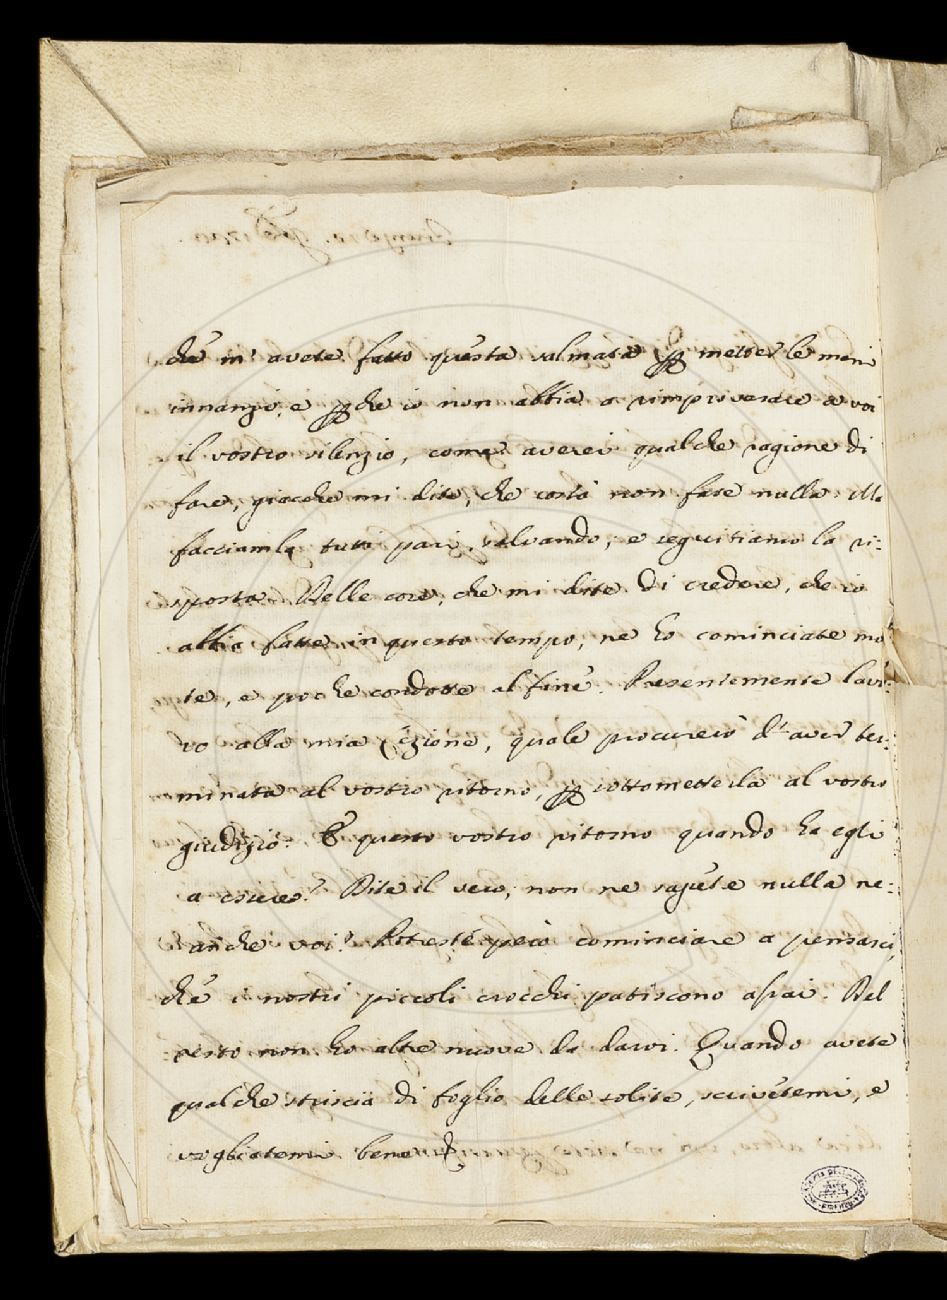 che m'avete fatto questa salmata per metter le mani
innanzi, e perche io non abbia a rimproverare a voi
il vostro silenzio, come averei qualche ragione di
fare, giacche mi dite, che costà non fate nulla. Ma
facciamla tutti pari, salvando, e seguitiamo la ri=
sposta. Delle cose, che mi dite di credere, che io
abbia fatte in questo tempo, ne ho cominciate mol
te, e poche condotte al fine. Presentemente lavo=
ro alla mia Lezione, quale procurerò d'aver ter=
minata al vostro ritorno, per sottometterla al vostro
giudizio. E questo vostro ritorno quando ha egli
a essere? Dite il vero, non ne sapete nulla ne=
anche voi? Potreste però cominciare a pensarci,
che i nostri piccoli crocchi patiscono assai. Del
resto non ho altre nuove da darvi. Quando avete
qualche striscia di foglio delle solite, scrivetemi, e
vogliatemi bene